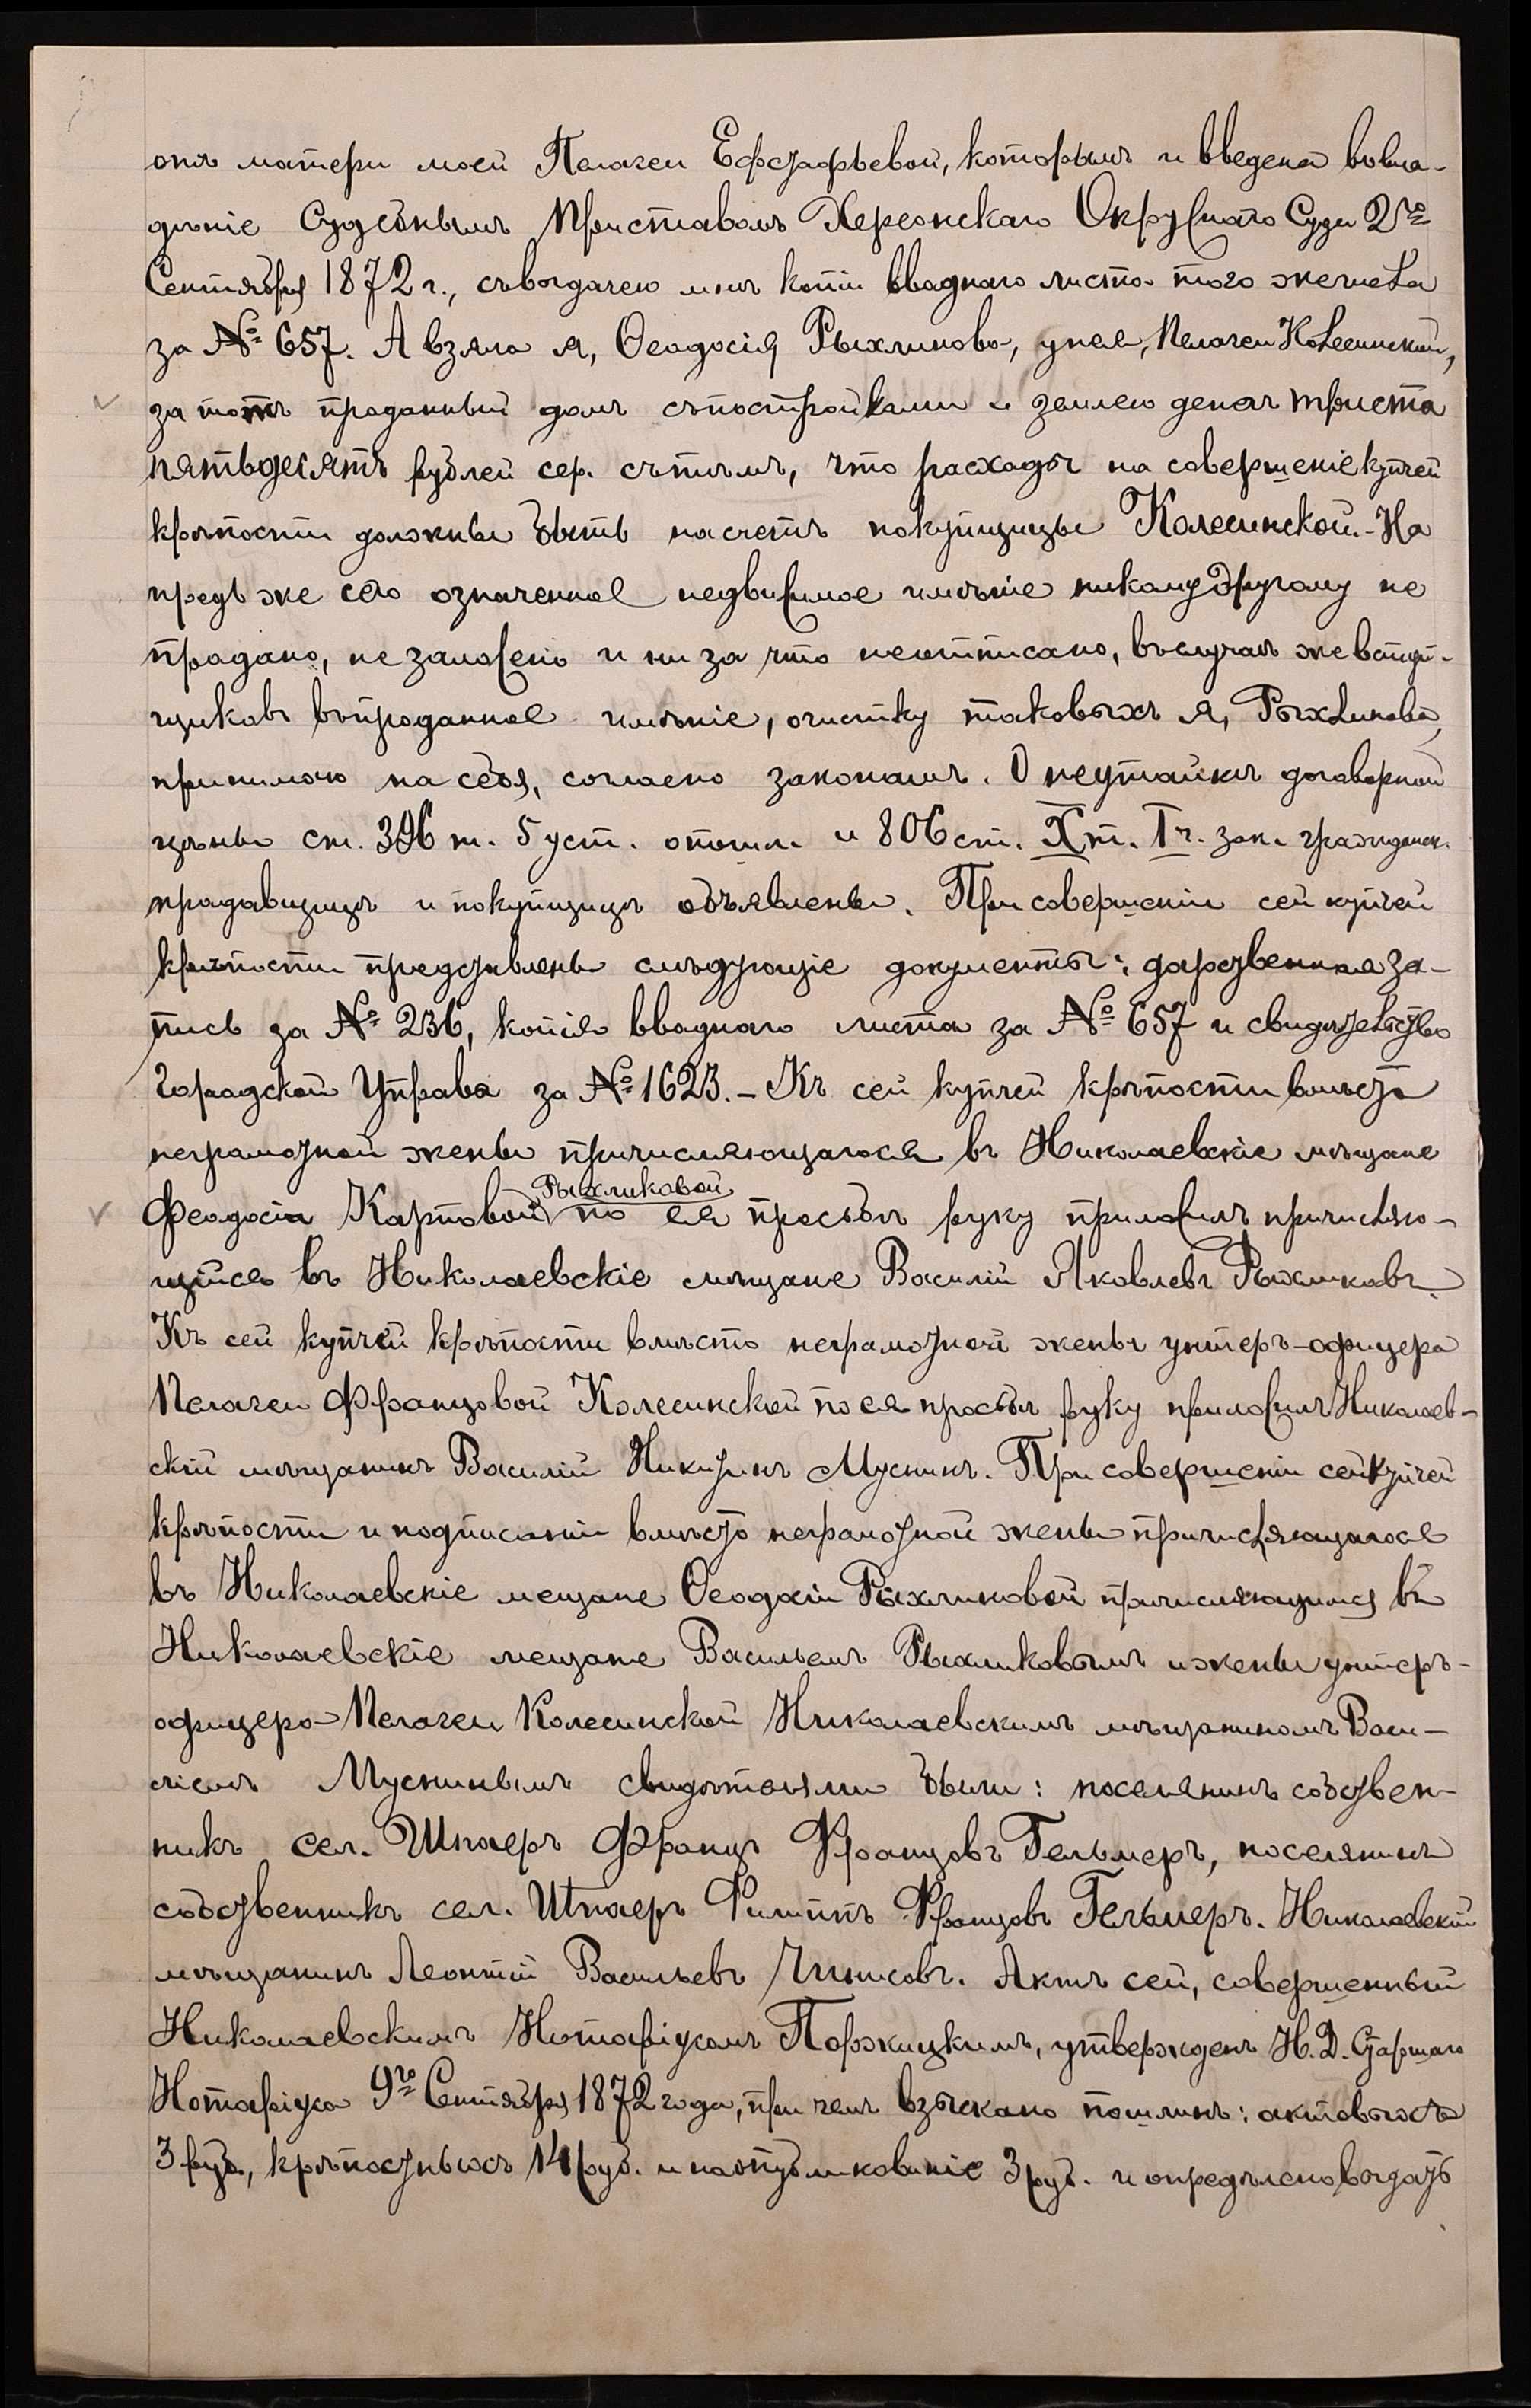 отъ матери моей Пелагеи Ефстафьевой, которымъ и введена вовла-
дѣніе Судебнымъ Приставомъ Херсонскаго Окружнаго Суда 2го
Сентября 1872 г., съвыдачею мнѣ копіи вводнаго листа того жечисла
за № 657. А взяла я, Ѳеодосія Рыхликова, унея, Пелагеи Колесинской,
за тотъ проданный домъ съпостройками и землею денегъ триста
пятьдесятъ рублей сер. сътѣмъ, что расходы на совершеніе купчей
крѣпости должны быть насчетъ покупщицы Колесинской.- На
предъ же сего означенное недвижимое имѣніе никому другому не
продано, не заложено и ни за что неотписано, вьслучаѣ же вступ-
щиковъ въпроданное имѣніе, очистку таковыхъ я, Рыхликова,
принимаю на себя, согласно законамъ. О неутайкѣ договорной
цѣны ст. 396 т. 5 уст. о пошл. и 806 ст. X т. I ч. зак. гражданск.
продавщицѣ и покупщицѣ объявлены. При совершеніи сей купчей
крѣпости представлены слѣдующіе документы: дарственная за-
пись за № 236, копія вводнаго листа за № 657 и свидѣтельство
Городской Управы за № 1623. – Къ сей купчей крѣпости вмѣсто
неграмотной жены причисляющагося въ Николаевскіе мѣщане
Феодосіи Карповой Рыхликовой по ея просьбѣ руку приложилъ причисляю-
щійся въ Николаевскіе мѣщане Василій Яковлевъ Рыхликовъ.
Къ сей купчей крѣпости вмѣсто неграмотной жены унтеръ-офицера
Пелагеи Францовой Колесинской по ея просьбѣ руку приложилъ Николаев-
скій мѣщанинъ Василій Никитинъ Мускинъ. При совершеніи сей купчей
крѣпости и подписаніи вмѣсто неграмотной жены причисляющагося
въ Николаевскіе мещане Ѳеодосіи Рыхликовой причисляющимся въ
Николаевскіе мещане Васильемъ Рыхликовымъ и жены унтеръ-
офицера Пелагеи Колесинской Николаевскимъ мѣщаниномъ Васи-
ліемъ Мускинымъ свидѣтелями были: поселянинъ собствен-
никъ сел. Шпаеръ Францъ Францовъ Гельмеръ, поселянинъ
собственникъ сел. Шпаеръ Филипъ Францовъ Гельмеръ. Николаевскій
мѣщанинъ Леонтій Васильевъ Чинисовъ. Актъ сей, совершенный
Николаевскимъ Нотаріусомъ Поржицкимъ, утвержденъ Н. Д. Старшаго
Нотаріуса 9го Сентября 1872 года, при чемъ взыскано пошлинъ: актовыхъ
3 руб., крѣпостныхъ 14 руб. и наопубликованіе 3 руб. и опредѣлено выдать